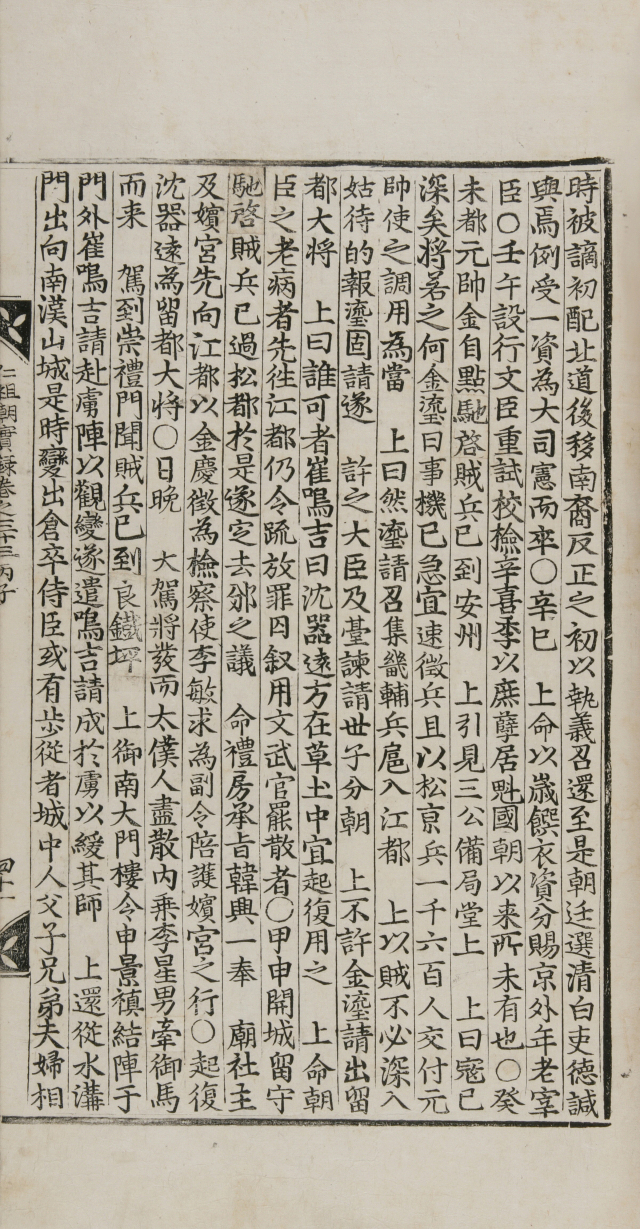 時被謫初配北道後移南裔反正之初以執義召還至是朝廷選清白吏德諴
與焉例受一資為大司憲而卒○辛巳　上命以歲饌衣資分賜京外年老宰
臣○壬午設行文臣重試校檢辛喜季以庶孽居魁國朝以來所未有也○癸
未都元帥金自點馳啓賊兵已到安州　上引見三公備局堂上　上曰寇已
深矣將若之何金瑬曰事機已急宜速徵兵且以松京兵一千六百人交付元
帥使之調用為當　上曰然瑬請召集畿輔兵扈入江都　上以賊不必深入
姑待的報瑬固請遂　許之大臣及臺諫請世子分朝　上不許金瑬請出留
都大將　上曰誰可者崔鳴吉曰沈器遠方在草土中宜起復用之　上命朝
臣之老病者先往江都仍令疏放罪囚叙用文武官罷散者○甲申開城留守
馳啓賊兵已過松都於是遂定去邠之議　命禮房承旨韓興一奉　廟社主
及嬪宮先向江都以金慶徵為檢察使李敏求為副令陪護嬪宮之行○起復
沈器遠為留都大將○日晩　大駕將發而太僕人盡散內乘李星男牽御馬
而来　駕到崇禮門聞賊兵已到良鐵坪　上御南大門樓令申景禛結陣于
門外崔鳴吉請赴虜陣以觀變遂遣鳴吉請成於虜以緩其師　上還從水溝
門出向南漢山城是時變出倉卒侍臣或有步從者城中人父子兄弟夫婦相
仁祖朝實錄卷之三十三丙子
四十一